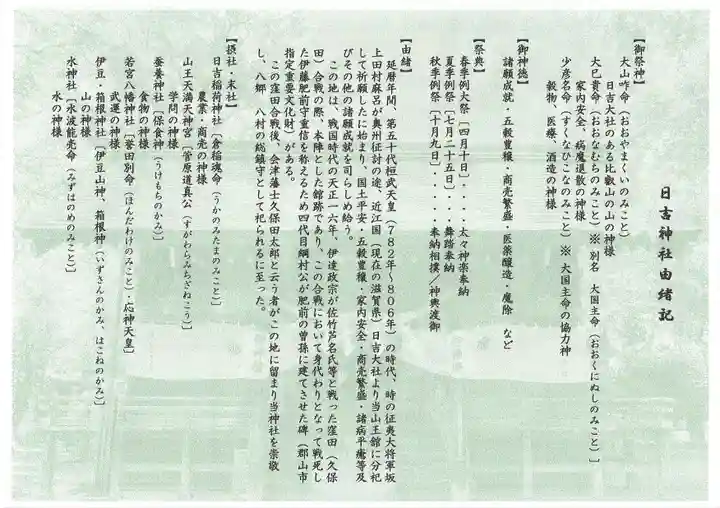 日吉神社由緒記
【御祭神】
大山咋命(おおやまくいのみこと)
日吉大社のある比叡山の山の神様
大巳貴命(おおなむちのみこと)※別名 大国主命(おおくにぬしのみこと)]
家内安全、病魔退散の神様
少彦名命(すくなひこなのみこと)※ 大国主命の協力神
穀物、医療、酒造の神様
【御神徳】
諸願成就・五穀豊穣・商売繁盛・医薬醸造・魔除 など
【祭典】
春季例大祭[四月十日]・・・・・太々神楽奉納
夏季例祭[七月二十五日]・・・・舞踏奉納
秋季例祭[十月九日]・・・・・・奉納相撲/神輿渡御
【由緒】
延暦年間、第五十代桓武天皇(782年~806年)の時代、時の征夷大将軍坂
上田村麻呂が奥州征討の途、近江国(現在の滋賀県)日吉大社より当山王館に分祀
して祈願したに始まり、国土平安・五穀豊穣・家内安全・商売繁盛・諸病平癒等及
びその他の諸願成就を司らしめ給う。
この地は、戦国時代の天正一六年、伊達政宗が佐竹芦名氏等と戦った窪田(久保
田)合戦の際、本陣とした館跡であり、この合戦において身代わりとなって戦死し
た伊藤肥前守重信を称えるため四代目綱村公が肥前の曾孫に建てさせた碑(郡山市
指定重要文化財)がある。
この窪田合戦後、会津藩士久保田太郎と云う者がこの地に留まり当神社を崇敬
し、八郷 八村の総鎮守として祀られるに至った。
【摂社・末社】
日吉稲荷神社[倉稲魂命(うかのみたまのみこと)]
農業・商売の神様
山王天満天神宮[菅原道真公(すがわらみちざねこう)]
学問の神様
蚕養神社[保食神(うけもちのかみ)]
食物の神様
若宮八幡神社[誉田別命(ほんだわけのみこと)・応神天皇]
武運の神様
伊豆・箱根神社[伊豆山神、箱根神(いずさんのかみ、はこねのかみ)]
山の神様
水神社[水波能売命(みずはのめのみこと)]
水の神様